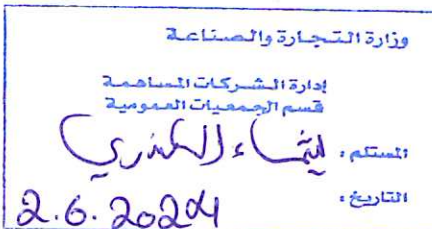 وزارة التجارة والصناعة
إدارة الشركات المساهمة
قسم الجمعيات العمومية
المستلم : الكندري
التاريخ : 2.6.2024